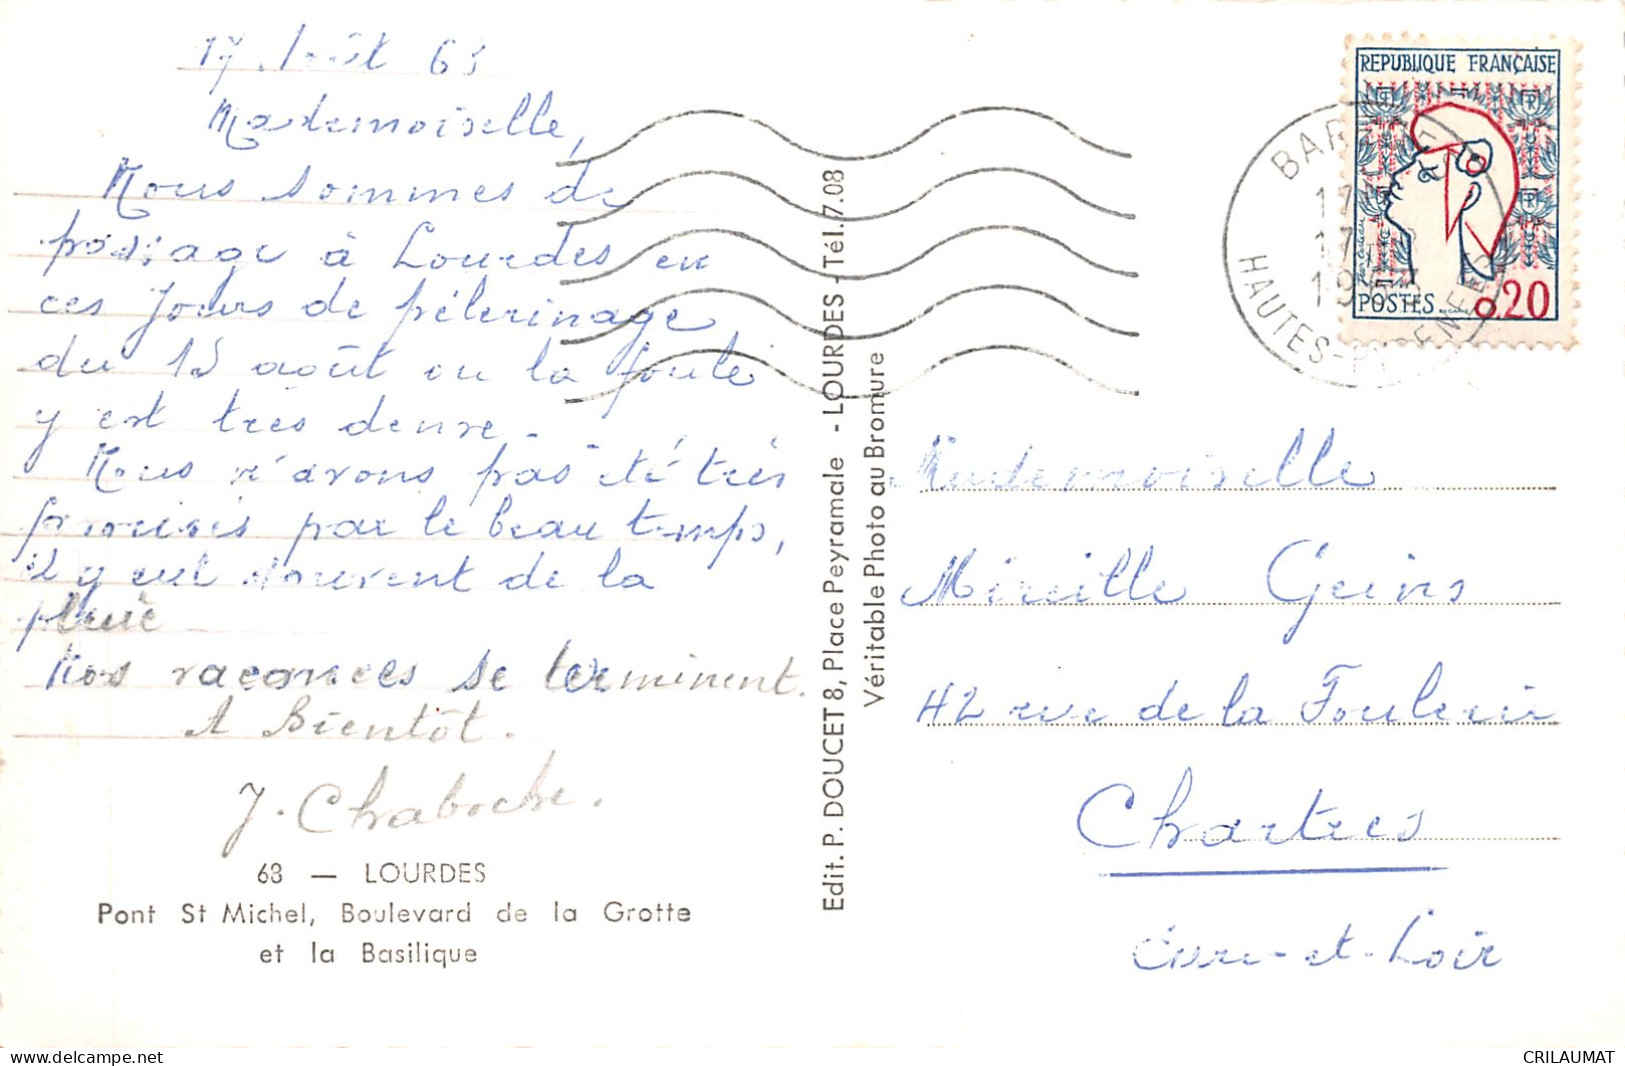 17 Août 63
Mademoiselle,
Nous sommes de
passage à Lourdes en
ces jours de pélerinage
du 15 août ou la foule
y est très dense.
Nous n'avons pas été très
favorisés par le beau temps,
il y eut souvent de la
pluie
Nos vacances se terminent.
A Bientôt.
J. Chaboche.
63 — LOURDES
Pont St Michel, Boulevard de la Grotte
et la Basilique
Edit. P. DOUCET 8, Place Peyramale - LOURDES - Tél. 7.08
Véritable Photo au Bromure
REPUBLIQUE FRANÇAISE
POSTES
0,20
HAUTES-PYRENEES
17
1963
Mademoiselle
Mireille Geins
42 rue de la Foulerie
Chartres
Eure-et-Loir
www.delcampe.net
CRILAUMAT